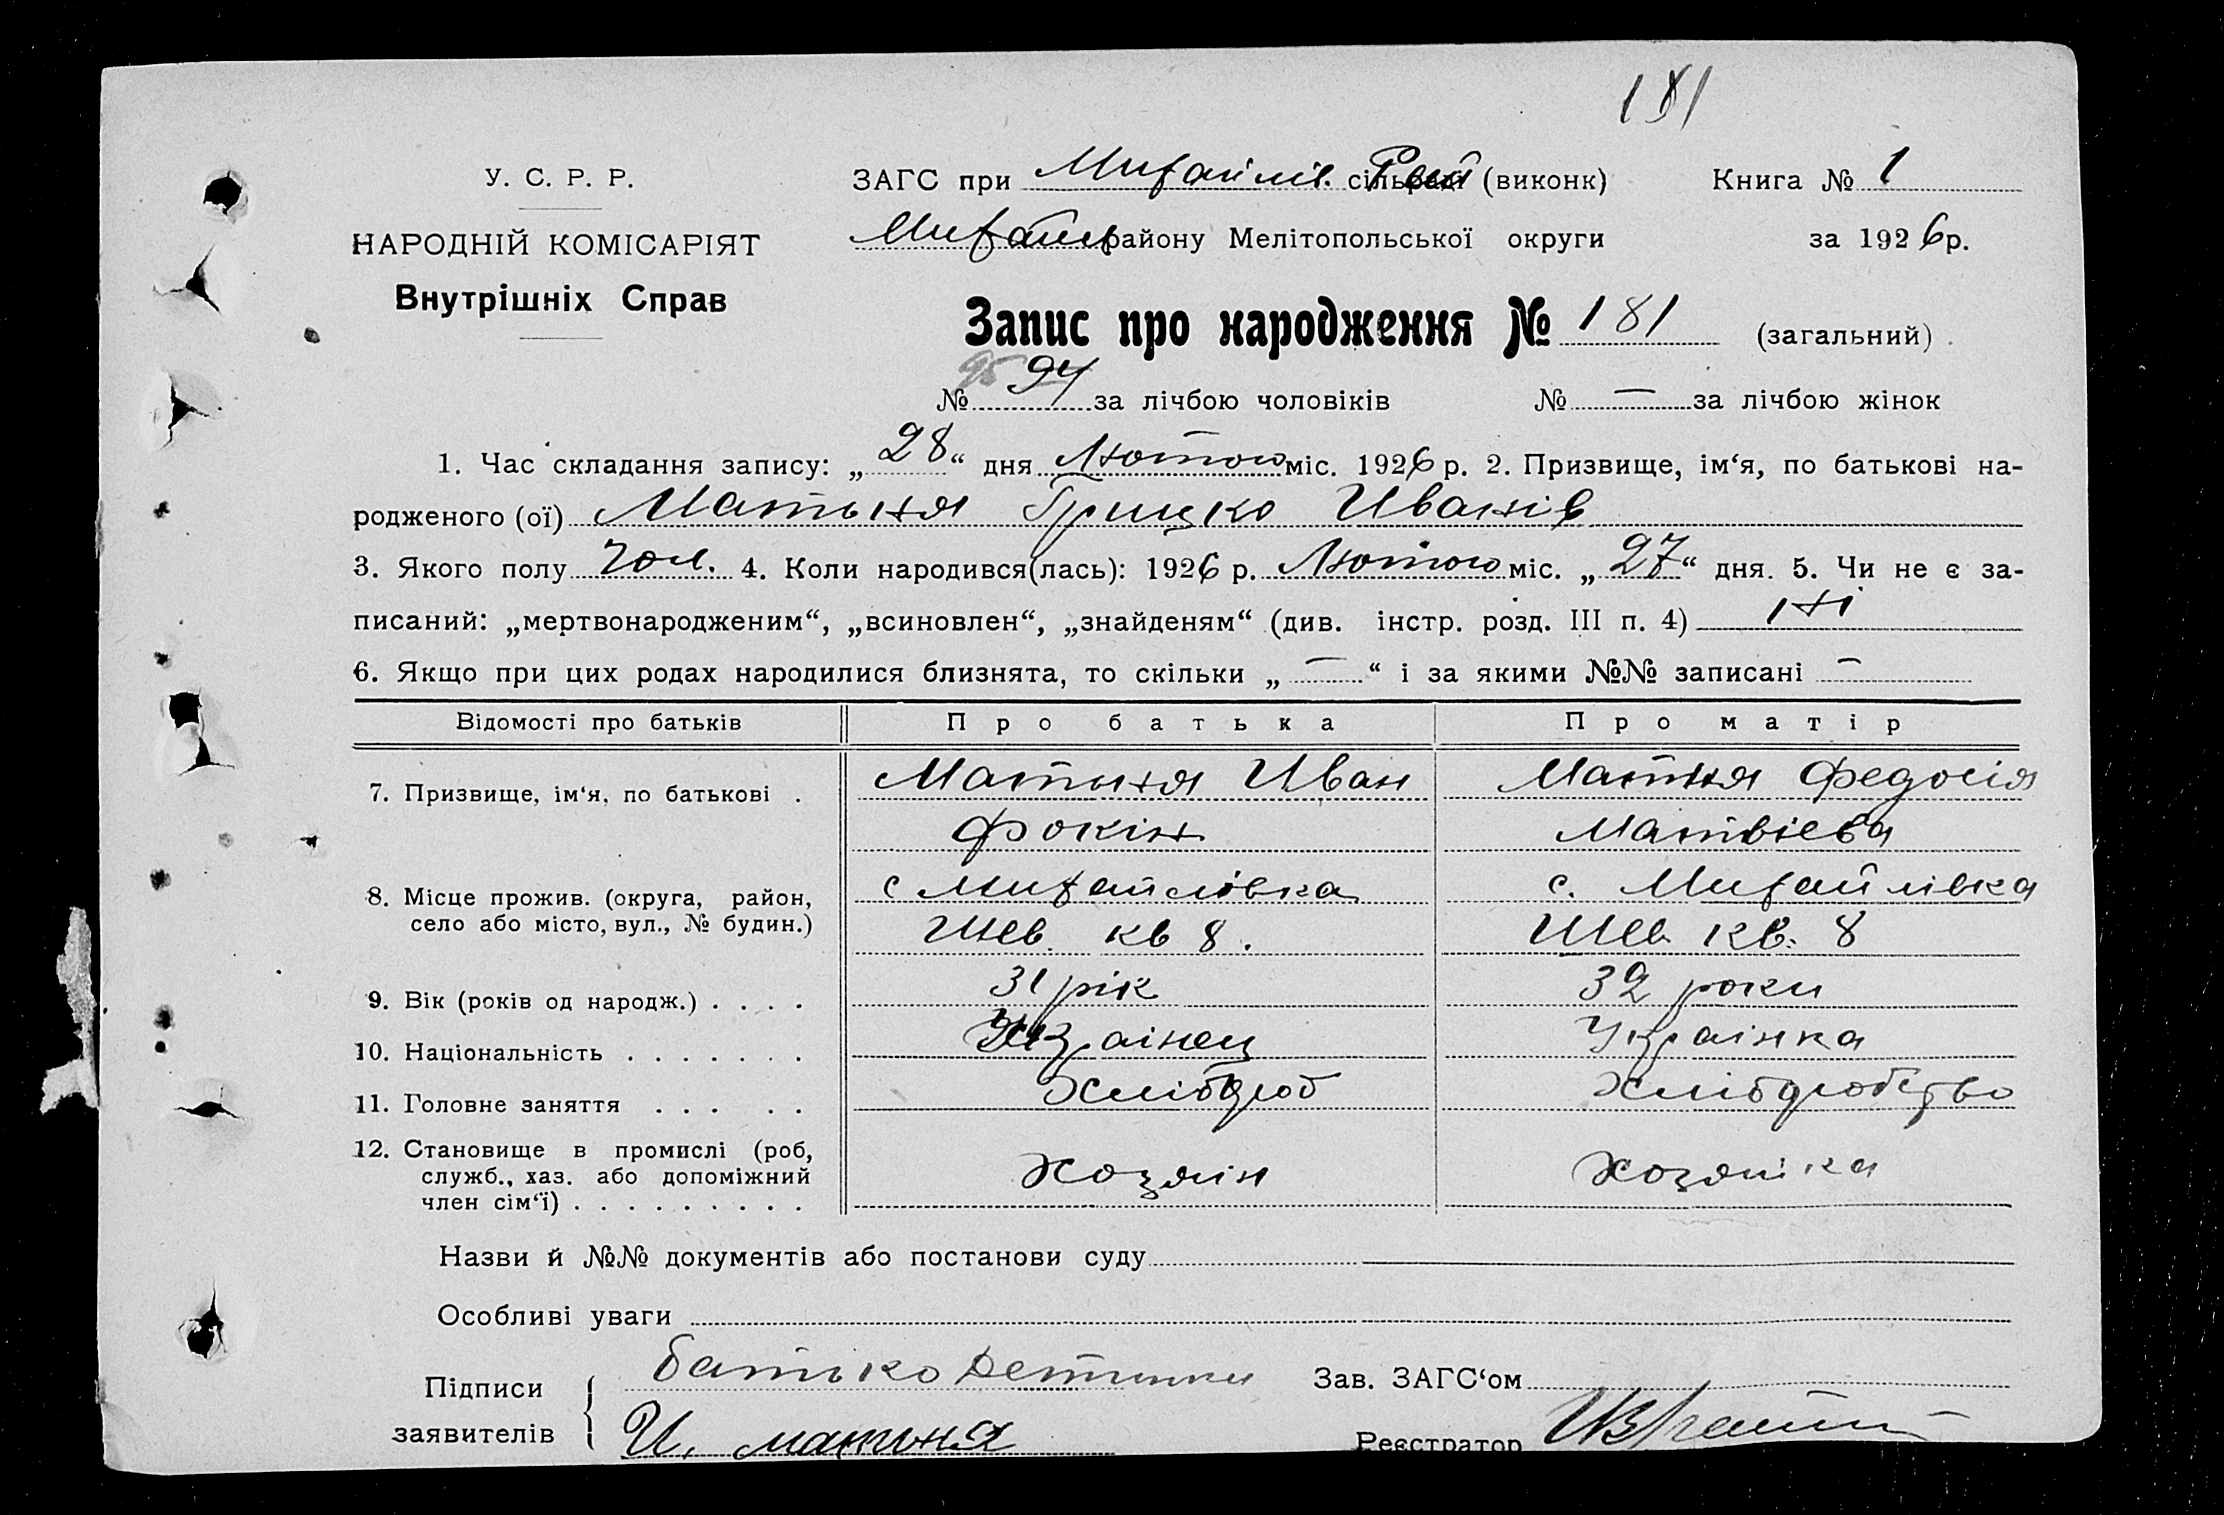 181
У. С. Р. Р.
ЗАГС при Михайлів. сільраді Рай (виконк) Книга № 1
НАРОДНІЙ КОМІСАРІЯТ Михайл району Мелітопольської округи за 1926 р.
Внутрішніх Справ
Запис про народження № 181 (загальний)
95
№ 94 за лічбою чоловіків № — за лічбою жінок
1. Час складання запису: „28“ дня Лютого міс. 1926 р. 2. Призвище, ім‘я, по батькові на-
родженого (ої) Матыня Грицко Иванів
3. Якого полу Чол. 4. Коли народився(лась): 1926 р. Лютого міс. „27“ дня. 5. Чи не є за-
писаний: „мертвонародженим“, „всиновлен“, „знайденям“ (див. інстр. розд. III п. 4) ні
6. Якщо при цих родах народилися близнята, то скільки „—“ і за якими №№ записані —
Відомості про батьків Про батька Про матір
7. Призвище, ім‘я, по батькові . Матыня Иван Матня Федосія
Фокін Матвієва
8. Місце прожив. (округа, район, с Михайлівка с. Михайлівка
село або місто, вул., № будин.) Шев. кв 8. Шев. кв. 8
9. Вік (років од народж.) . . . . 31 рік 32 роки
10. Національність . . . . . . . Украінец Украінка
11. Головне заняття . . . . . Хлібороб Хліборобство
12. Становище в промислі (роб, Хозяін Хозяйка
служб., хаз. або допоміжний
член сім‘ї) . . . . . . . . .
Назви й №№ документів або постанови суду
Особливі уваги
Підписи Батько Детини Зав. ЗАГС‘ом
заявителів И. матыня Реєстратор